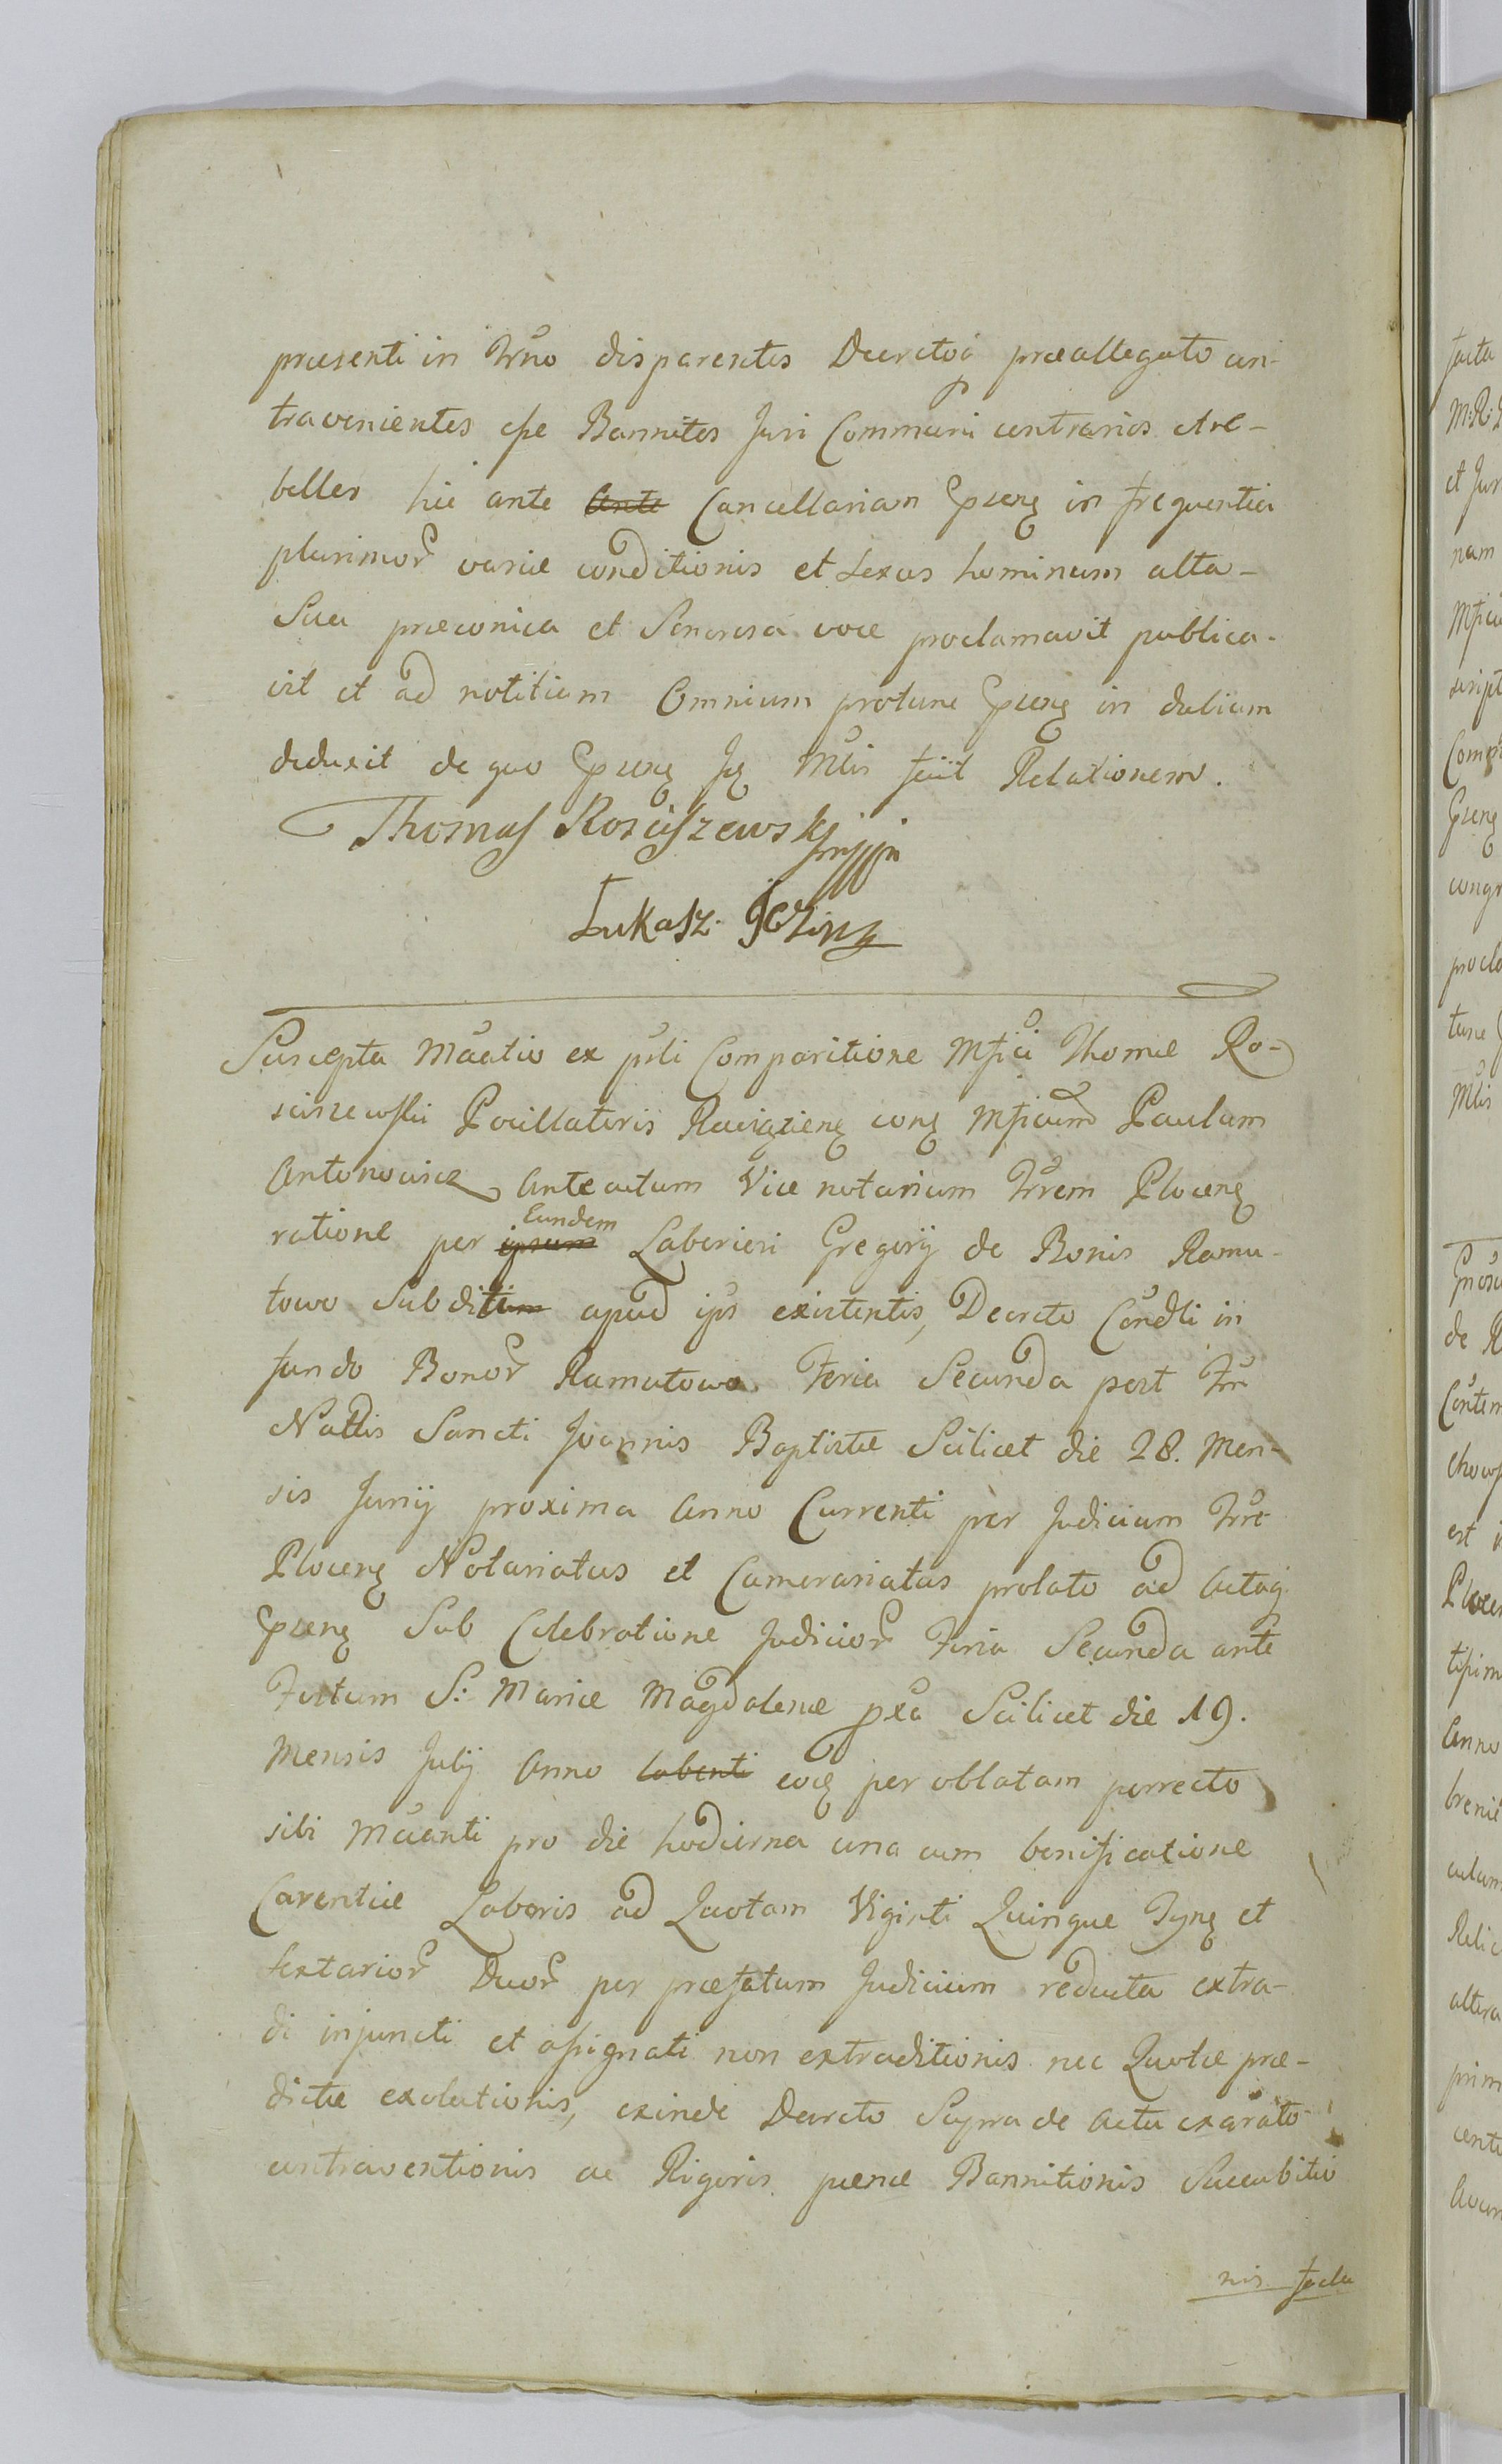 praesenti in Trno disparentes Decretoq praeallegato con-
travenientes esse Bannitos Juri Communi contrarios et re-
belles hic ante Ante Cancellariam Gpseng in frequentia
plurimor variae conditionis et Sexus hominum alta-
Sua praeconica et Sonorosa voce proclamavit publica-
vit et ad notitiam Omnium protunc Gpseng in dubium
deduxit de quo Gpseng Jq Mlis fecit Relationem.
Thomas Rosciszewski mppa
Lukasz
Suscepta Maatio ex psti Comparitione Mfici Thomae Ro-
sciszewski Pocillatoris Raciązieng cong Mficum Paulum
Antonowicz Anteactum Vice notarium Trrem Ploceng
ratione per ipsum Eundem Laboriosi Gregorij de Bonis Ramu-
towo Subditum apud ips existentis, Decreto Condli in
fundo Bonor Ramutowo Feria Secunda post Ftm
Natlis Sancti Joannis Baptistae Scilicet die 28. Men-
sis Junij proxima Anno Currenti per Judicium Trre
Ploceng Notariatus et Camerariatus prolato ad Actaq
Gpseng Sub Celebratione Judicior Feria Secunda ante
Festum S: Mariae Magdalenae pxa Scilicet die 19.
Mensis Julij Anno labenti eodq per oblatam porrecto
sibi Maanti pro die hodierna una cum bonificatione
Carentiae Laboris ad Quotam Viginti Quinque Tyng et
sextarior Duor per praefatum Judicium reducta extra-
di injuncti et assignati non extraditionis nec Quotae prae-
dictae exolutionis, exinde Decreto Supra de Actu exarato
contraventionis ac Rigoris paenae Bannitionis Succubitio
nis facta